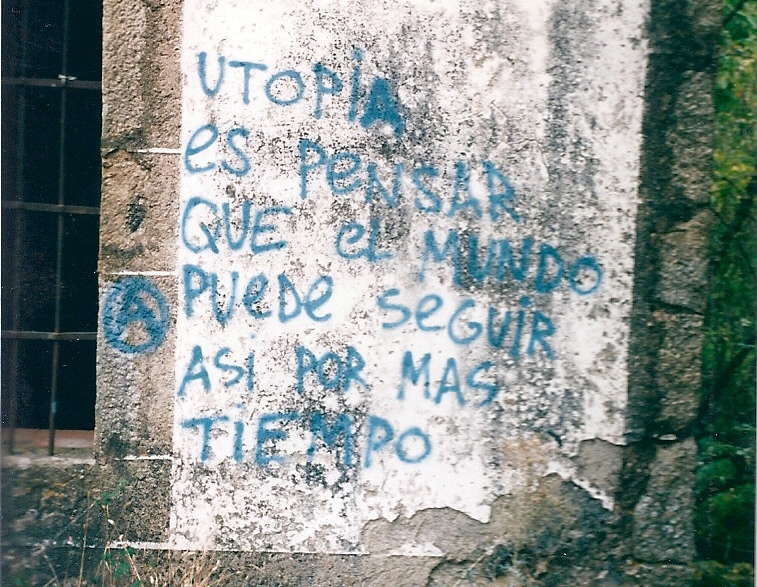 UTOPiA
es PeNSAR
QUE eL MUNDO
PUeDe SeGUiR
ASi POR MAS
TiEMPO
A